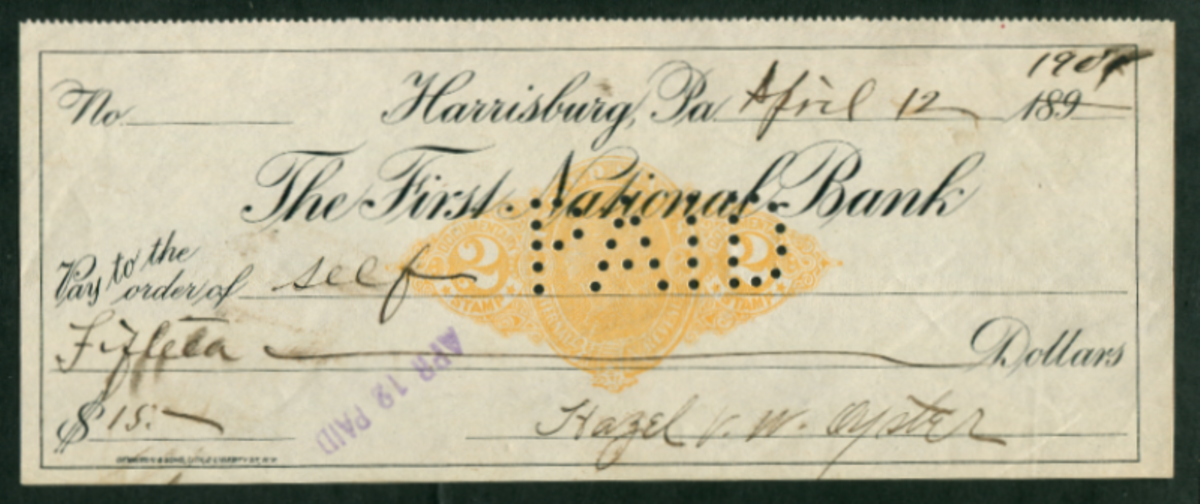 1901
No Harrisburg, Pa April 12 189
The First National Bank
PAID
Pay to the order of self
2 STAMP 2 STAMP
Fifteen Dollars
APR 12 PAID
$ 15.
Hazel V. W. Oyster